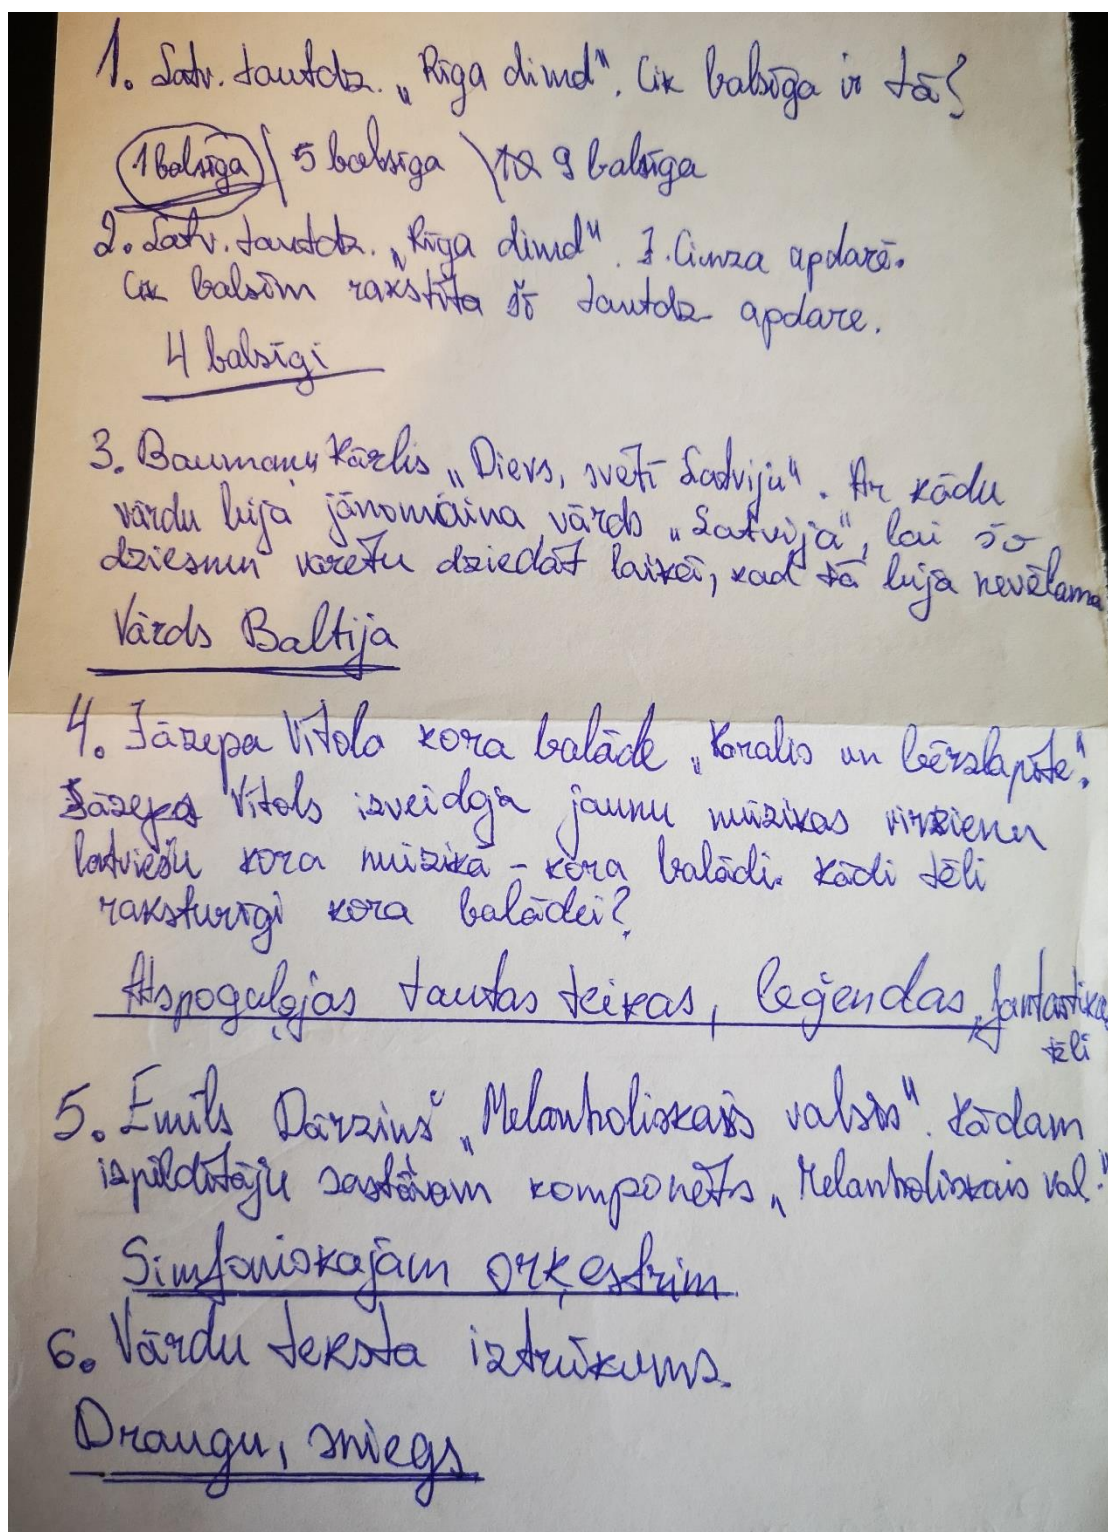 1. Latv. tautdz. „Rīga dimd". Cik balsīga ir tā?
1 balsīga / 5 balsīga \ 9 balsīga
2. Latv. tautdz. „Rīga dimd". J. Cimza apdarē.
Cik balsīm rakstīta šī tautdz apdare.
4 balsīgi
3. Baumaņu Kārlis „Dievs, svētī Latviju". Ar kādu
vārdu bija jānomaina vārds „Latvija", lai šo
dziesmu varētu dziedāt laikā, kad tā bija nevēlama
Vārds Baltija
4. Jāzepa Vītola kora balāde „Karalis un bērzlapīte".
Jāzeps Vītols izveidoja jaunu mūzikas virzienu
latviešu kora mūzikā - kora balādi. Kādi tēli
raksturīgi kora balādei?
Atspoguļojas tautas teikas, leģendas, fantastikas
tēli
5. Emīls Dārziņš „Melanholiskais valsis". Kādam
izpildītāju sastāvam komponēts „Melanholiskais val."
Simfoniskajām orķestrim
6. Vārdu teksta iztrūkums.
Draugu, sniegs